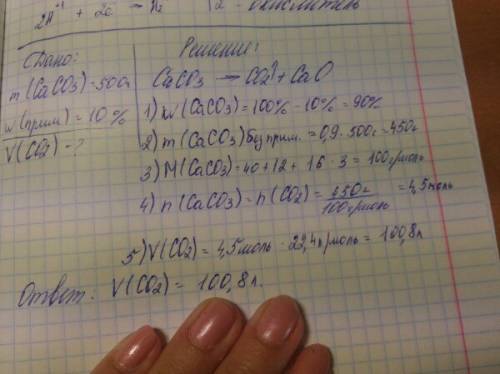 2H⁺¹ + 2ē → H₂ | 2 - окислитель
Дано:
m(CaCO3)=500г
w(прим.)=10%
V(CO2)-?
Решение:
CaCO3 → CO2↑ + CaO
1) w(CaCO3)=100%-10%=90%
2) m(CaCO3)без прим.=0,9·500г=450г
3) M(CaCO3)=40+12+16·3=100г/моль
4) n(CaCO3)=n(CO2)=450г/100г/моль=4,5моль
5) V(CO2)=4,5моль·22,4л/моль=100,8л
Ответ: V(CO2)=100,8л.